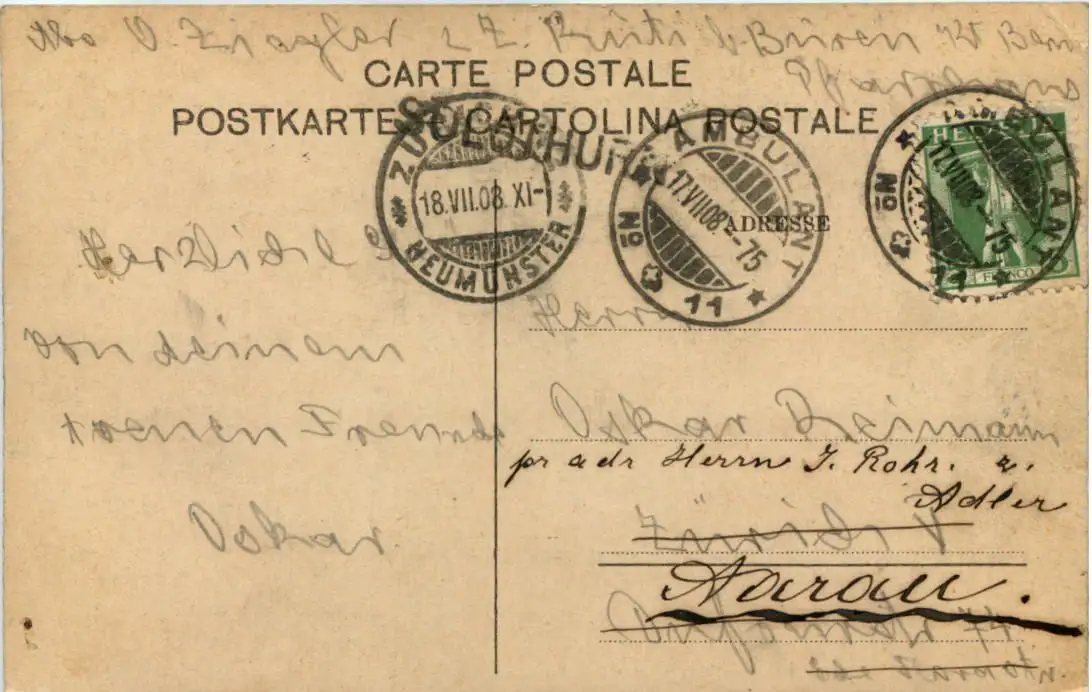 O. Ziegler z. Z. Rüti b. Büren Kt Bern
Pfarrhaus
CARTE POSTALE
POSTKARTE - CARTOLINA POSTALE
SOLOTHURN
ZÜRICH
18.VII.08. XI-
NEUMÜNSTER
AMBULANT
17.VII.08.-75
No 11
AMBULANT
17.VII.08.-75
No 11
HELVETIA
FRANCO
ADRESSE
Herzliche
von deinem
treuen Freunde
Oskar
Herrn
Oskar Reimann
pr adr Herrn J. Rohr. z.
Adler
Zürich V
Aarau.